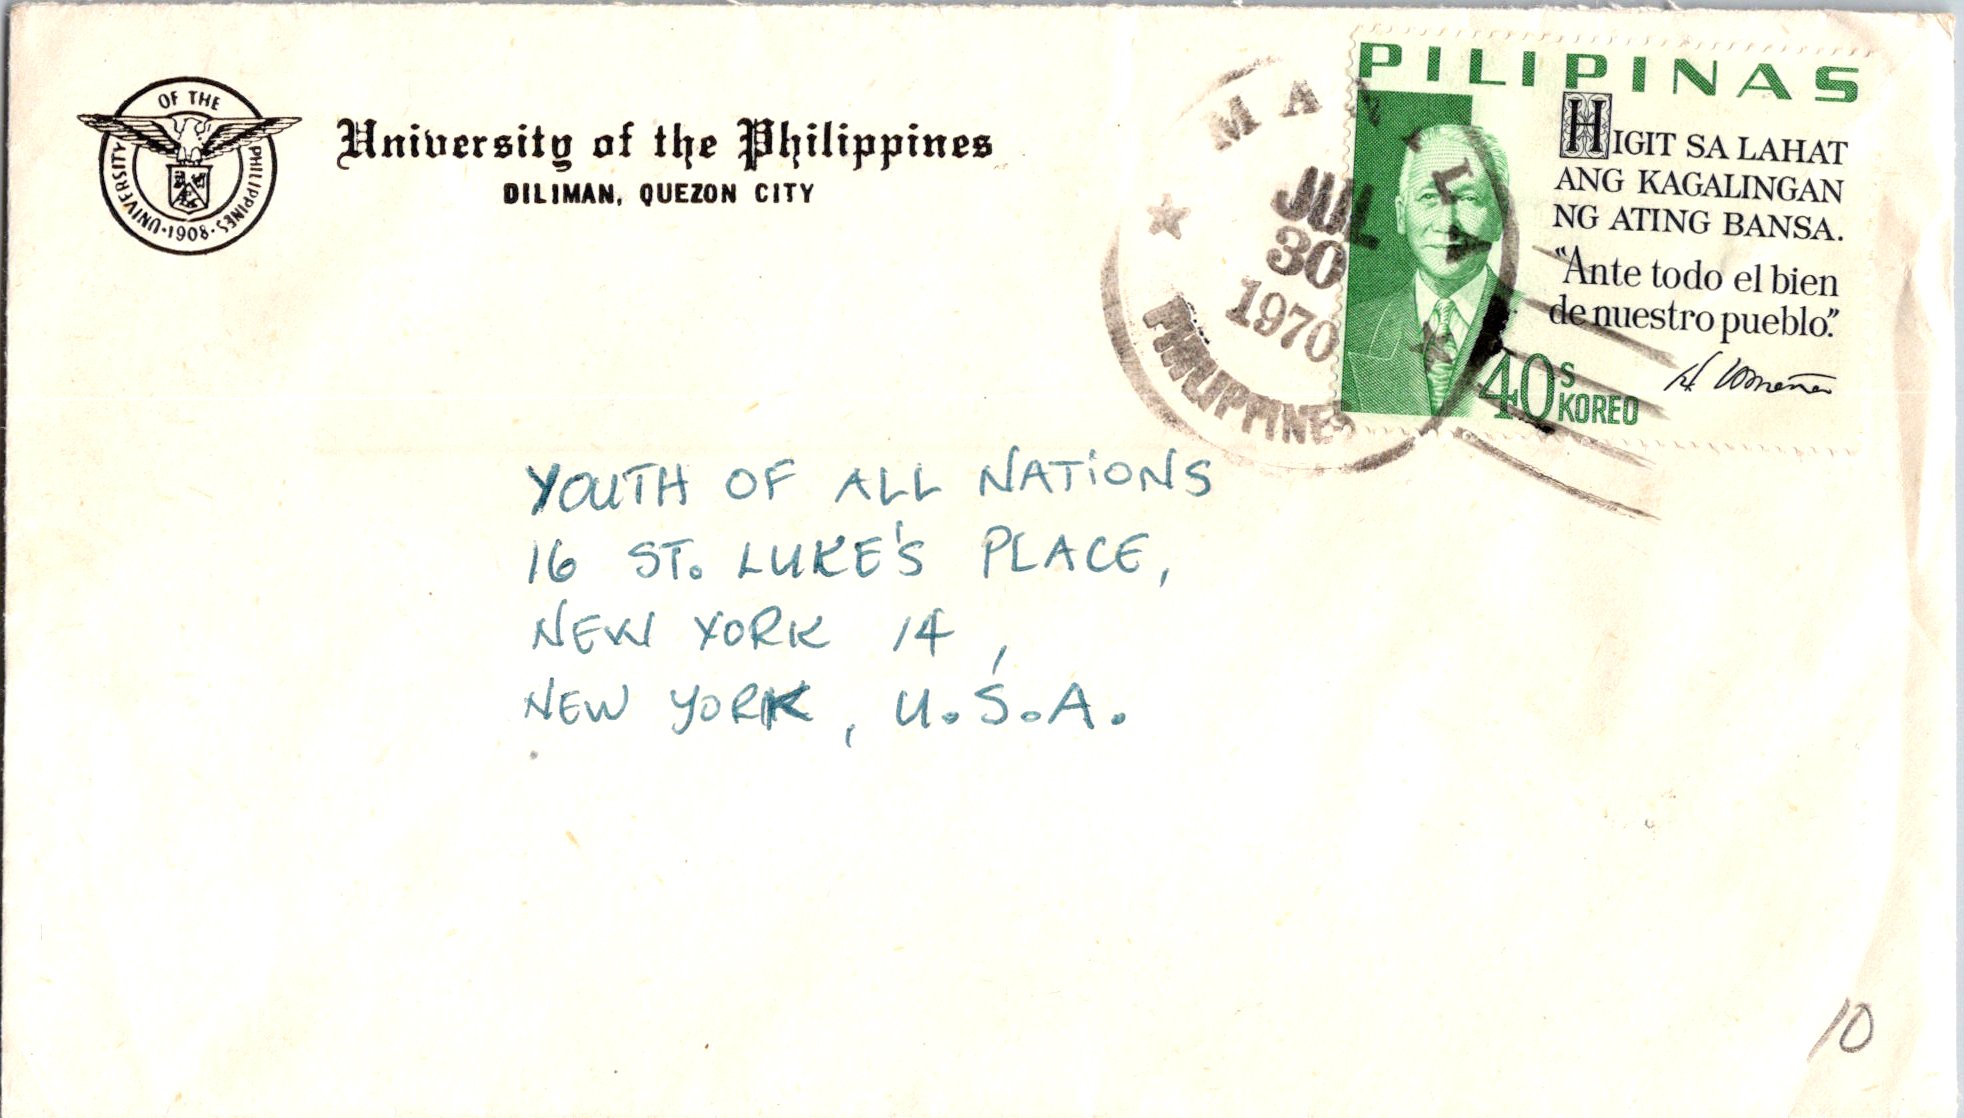 UNIVERSITY OF THE PHILIPPINES
·1908·
University of the Philippines
DILIMAN, QUEZON CITY
MANILA
JUL
30
1970
PHILIPPINES
PILIPINAS
HIGIT SA LAHAT
ANG KAGALINGAN
NG ATING BANSA.
“Ante todo el bien
de nuestro pueblo.”
40s
KOREO
YOUTH OF ALL NATIONS
16 ST. LUKE'S PLACE,
NEW YORK 14,
NEW YORK, U.S.A.
10